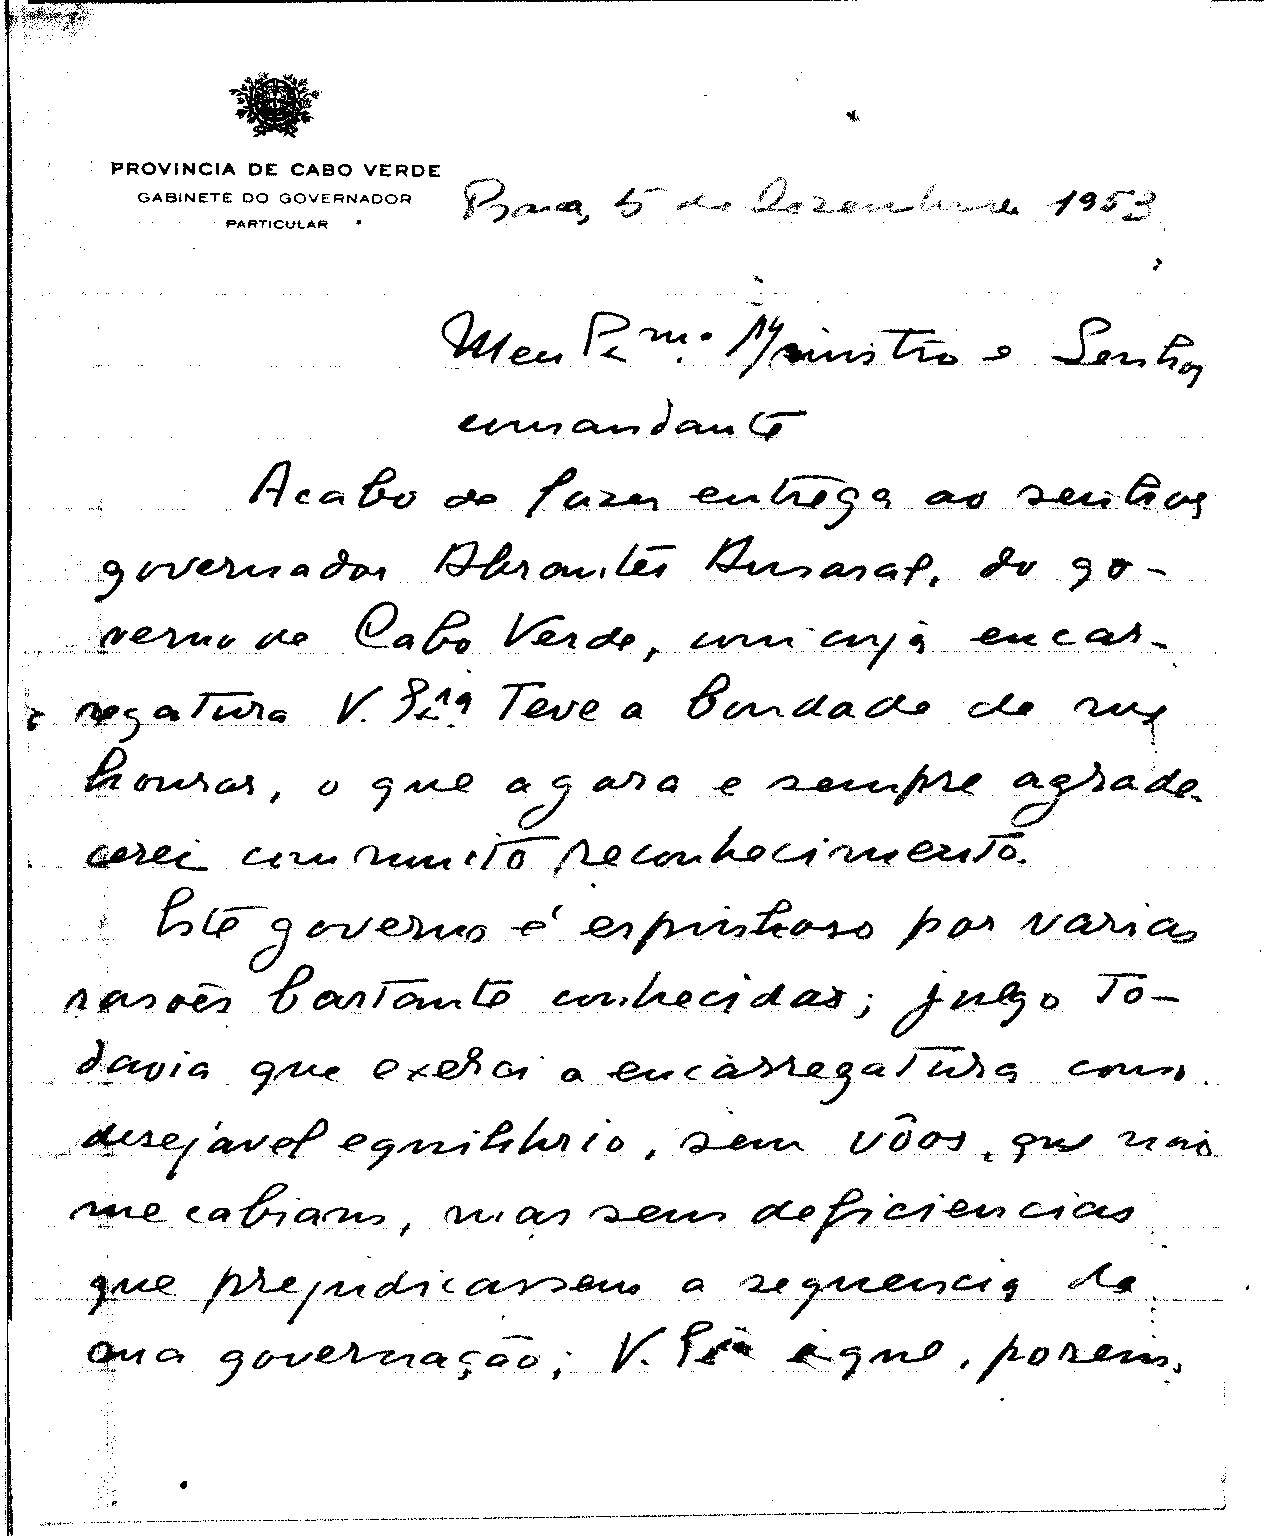 PROVINCIA DE CABO VERDE
GABINETE DO GOVERNADOR
PARTICULAR
Praia, 5 de Dezembro de 1953
Meu Exmo. Ministro e Senhor
comandante
Acabo de fazer entrega ao senhor
governador Abrantes Amaral, do go-
verno de Cabo Verde, com cuja encar-
regatura V. Exia Teve a bondade de me
honrar, o que agora e sempre agrade-
cerei com muito reconhecimento.
Este governo é espinhoso por varias
rasões bastante conhecidas; julgo To-
davia que exerci a encarregatura com
desejavel equilibrio, sem vôos, que não
me cabiam, mas sem deficiencias
que prejudicassem a sequencia da
sua governação; V. Exia é que, porem,